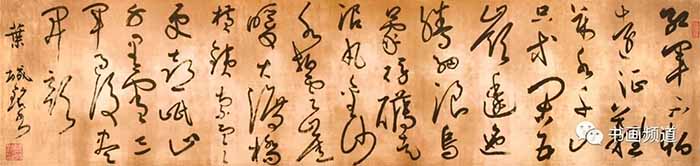 红軍不怕
遠征難
萬水千山
只等閑五
嶺逶迤
騰細浪烏
蒙磅礴走
泥丸金沙
水拍雲崖
暖大渡橋
横鐵索寒
更喜岷山
千里雪三
軍過後盡
開顔
葉
书画频道